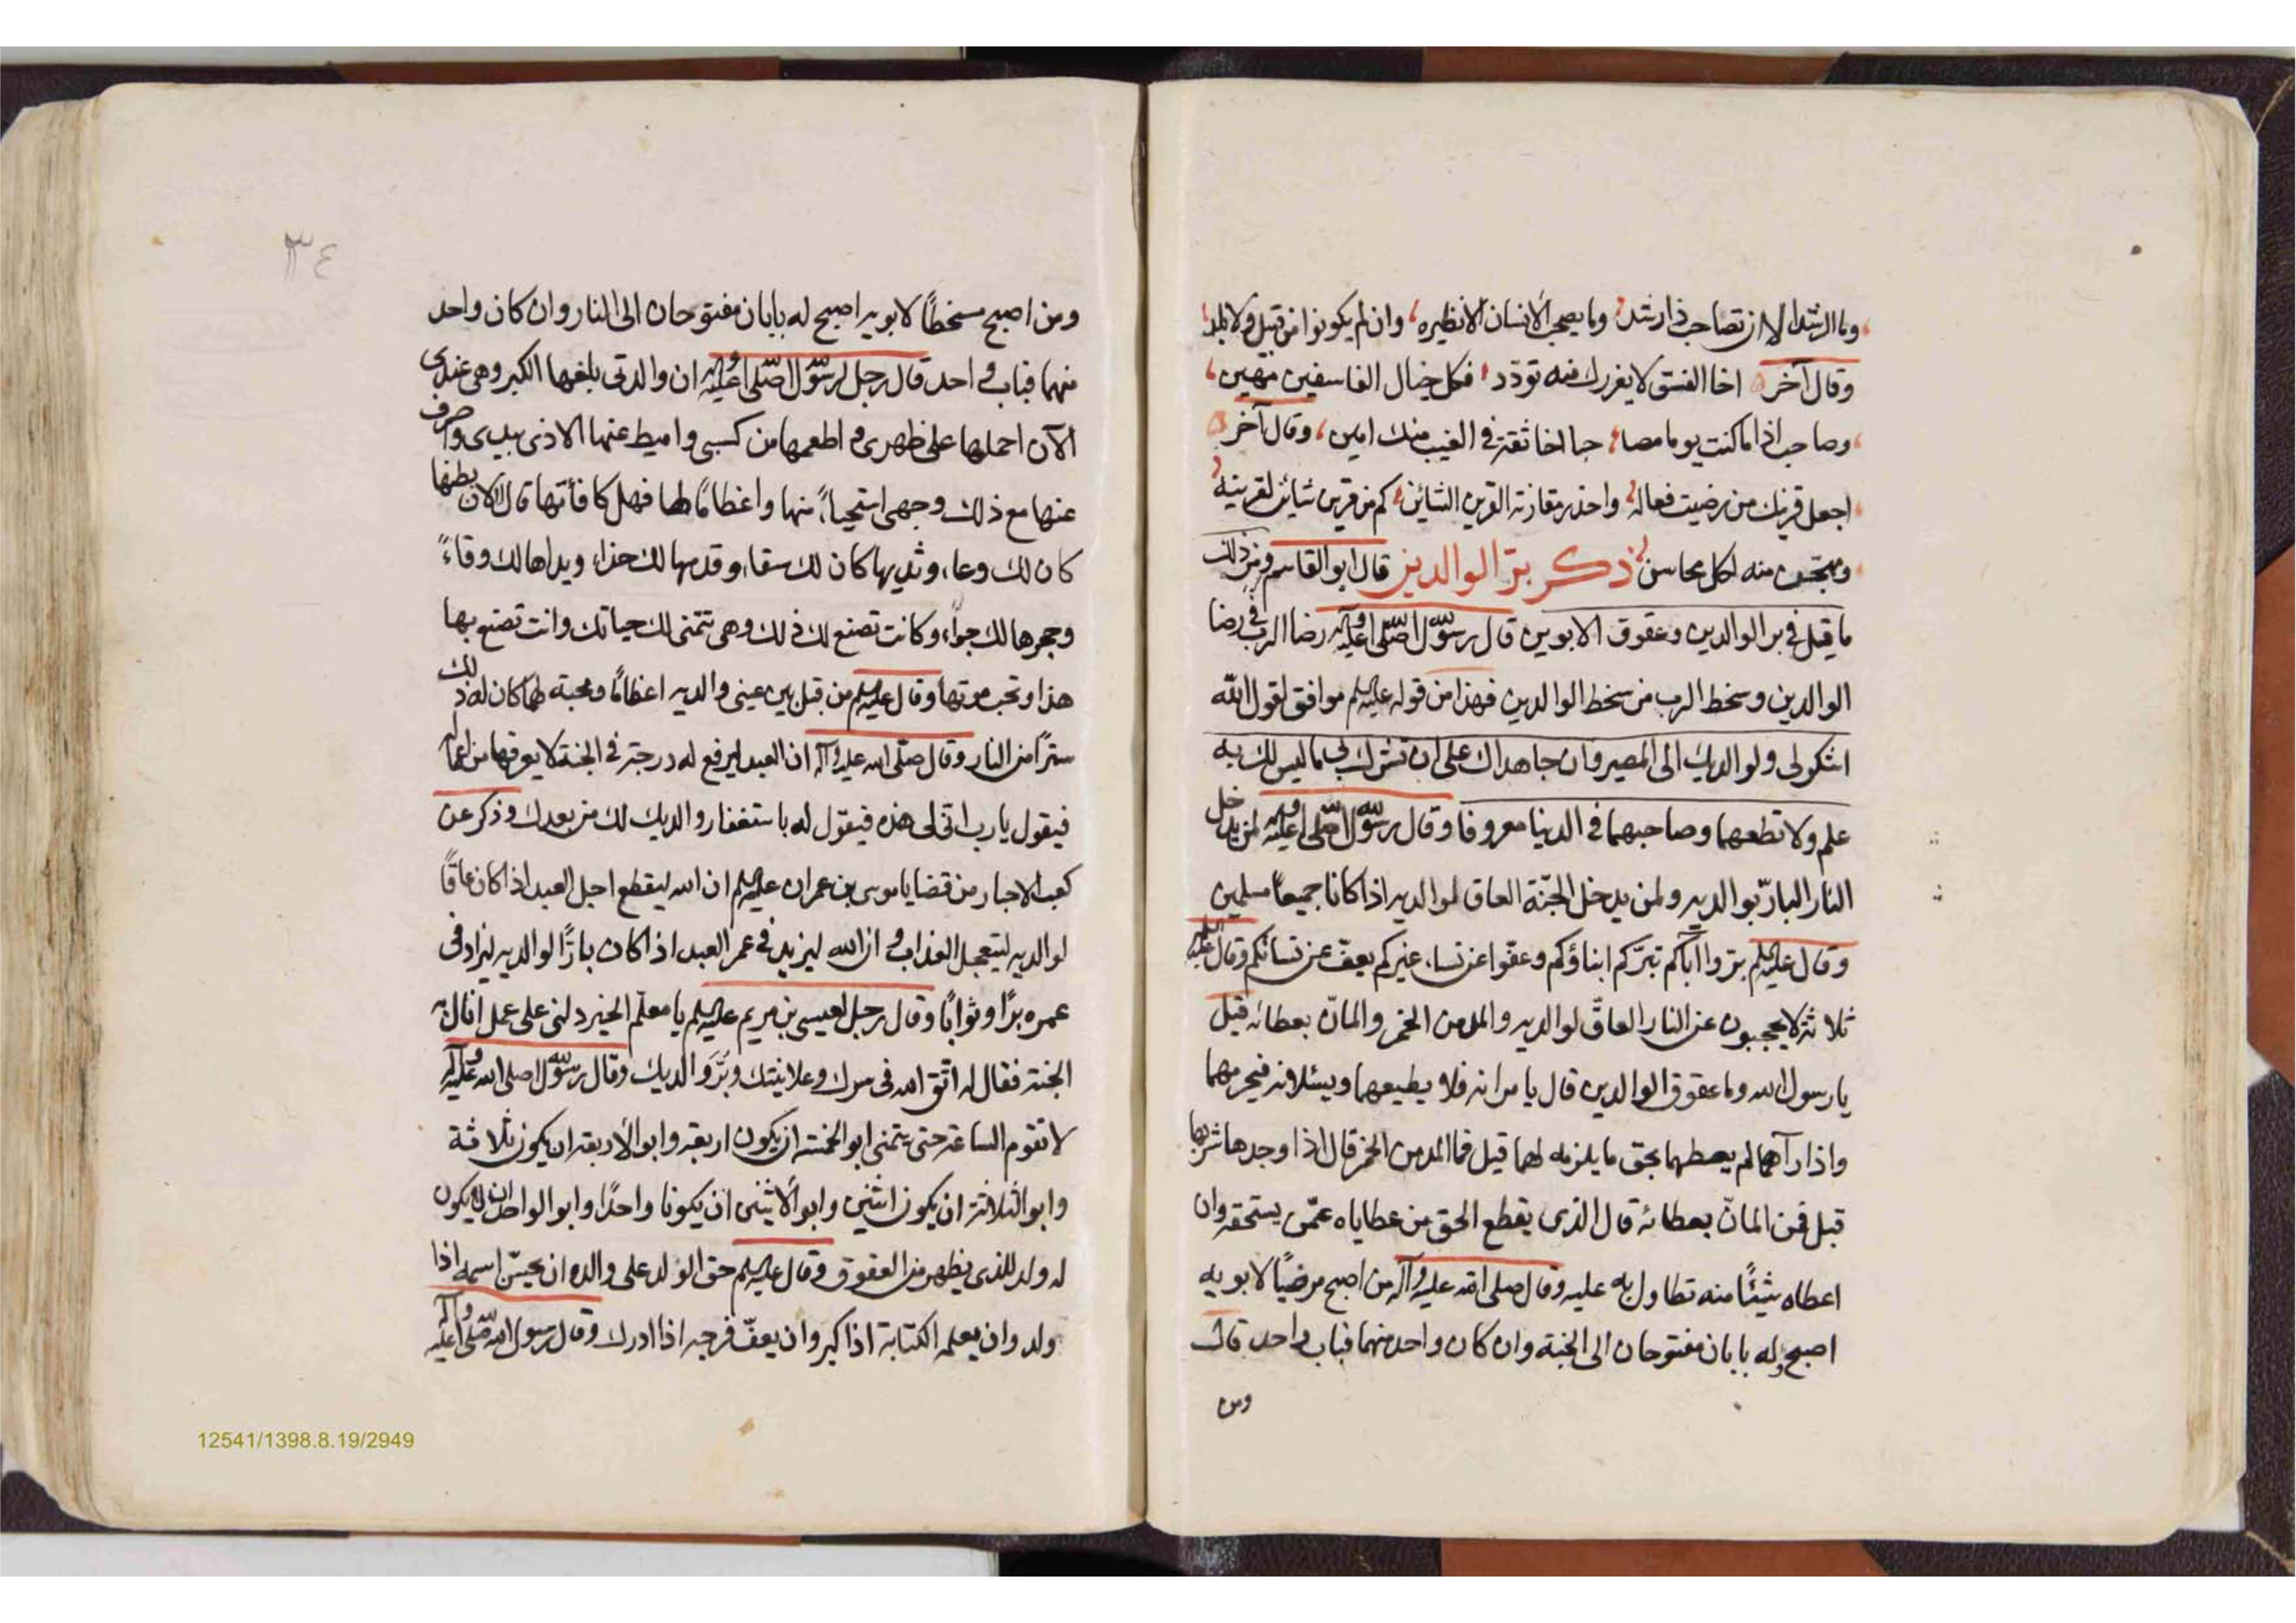 وما الرشد الا ان تصاحب ذا رشد وما يصحب الانسان الا نظيره وان لم يكونوا من قبيل ولا بلد
وقال آخر اخا الفسق لا يغررك منه تودّد فكل حبال الفاسقين مهين
وصاحب اذا ما كنت يوما مصاحبا اخا ثقة في الغيب منك امين وقال آخر
اجعل قرينك من رضيت فعاله واحذر مقارنة القرين الشائن كم من قرين شائن لقرينه
ومهجّن منه لكل محاسن ذكر برّ الوالدين قال ابو القاسم ومن ذلك
ما قيل في بر الوالدين وعقوق الابوين قال رسول الله صلى الله عليه وآله رضا الرب في رضا
الوالدين وسخط الرب من سخط الوالدين فهذا من قوله عليه السلم موافق لقول الله
اشكر لي ولوالديك الى المصير وان جاهداك على ان تشرك بي ما ليس لك به
علم ولا تطعهما وصاحبهما في الدنيا معروفا وقال رسول الله صلى الله عليه وآله لن يدخل
النار البارّ بوالديه ولن يدخل الجنّة العاق لوالديه اذا كانا جميعاً مسلمين
وقال عليه السلم برّوا آباكم تبرّكم ابناؤكم وعفّوا عن نساء غيركم يعفّ عن نسائكم وقال عليه السلم
ثلاثة لا يحجبون عن النار العاقّ لوالديه والمدمن الخمر والمانّ بعطائه قيل
يا رسول الله وما عقوق الوالدين قال يامرانه فلا يطيعهما ويسئلانه فيحرمهما
واذا رآهما لم يعطهما بحق ما يلزمه لهما قيل فما المدمن الخمر قال اذا وجدها شربها
قيل فمن المانّ بعطائه قال الذي يقطع الحق من عطاياه عمّن يستحقه وان
اعطاه شيئًا منه تطاول به عليه وقال صلى الله عليه وآله من اصبح مرضيًا لابويه
اصبح وله بابان مفتوحان الى الجنة وان كان واحد منهما فباب واحد قال
ومن
٣٤
ومن اصبح مسخطاً لابويه اصبح له بابان مفتوحان الى النار وان كان واحد
منهما فباب واحد قال رجل لرسول الله صلى الله عليه وآله ان والدتي بلغها الكبر وهي عندي
الآن احملها على ظهري واطعمها من كسبي واميط عنها الاذى بيدي واصرف
عنها مع ذلك وجهي استحياءً منها واعظامًا لها فهل كافأتها قال لا لان بطنها
كان لك وعاء وثديها كان لك سقاء وقدمها لك حذاء ويداها لك وقاءً
وحجرها لك حواءً وكانت تصنع لك ذلك وهي تتمنى لك حياتك وانت تصنع بها
هذا وتحب موتها وقال عليه السلم من قبل بين عيني والديه اعظامًا ومحبة لهما كان له ذلك
سترًا من النار وقال صلى الله عليه وآله ان العبد ليرفع له درجة في الجنة لا يعرفها من اعماله
فيقول يا رب انّى لي هذه فيقول له باستغفار والديك لك من بعدك وذكر عن
كعب الاحبار من قضايا موسى بن عمران عليه السلم ان الله ليقطع اجل العبد اذا كان عاقًا
لوالديه ليتعجل العذاب وان الله ليزيد في عمر العبد اذا كان بارًّا لوالديه ليزاد في
عمره برًا وثوابًا وقال رجل لعيسى بن مريم عليه السلم يا معلّم الخير دلني على عمل انال به
الجنة فقال له اتّق الله في سرك وعلانيتك وبَرَّ والديك وقال رسول الله صلى الله عليه وآله
لا تقوم الساعة حتى يتمنى ابو الخمسة ان يكون اربعة وابو الأربعة ان يكون ثلاثة
وابو الثلاثة ان يكون اثنين وابو الاثنين ان يكونا واحدًا وابو الواحد ان لا يكون
له ولد للذي يظهر من العقوق وقال عليه السلم حق الولد على والده ان يحسّن اسمه اذا
ولد وان يعلمه الكتابة اذا كبر وان يعفّ فرجه اذا ادرك وقال رسول الله صلى الله عليه وآله
12541/1398.8.19/2949